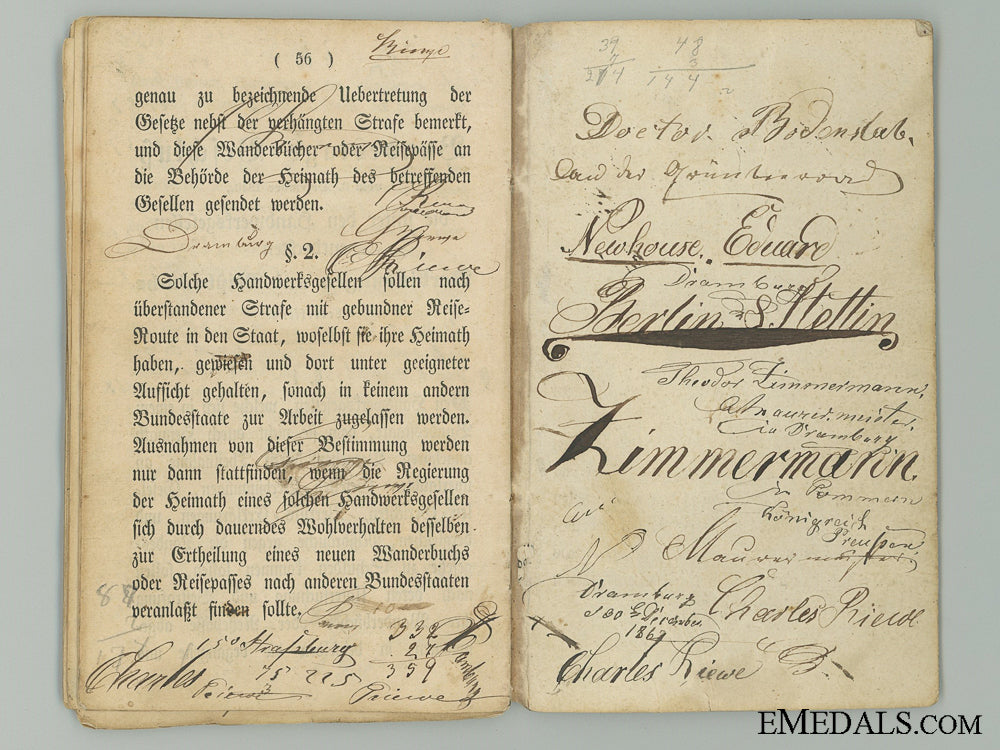 ( 56 )
genau zu bezeichnende Uebertretung der
Gesetze nebst der verhängten Strafe bemerkt,
und diese Wanderbücher oder Reisepässe an
die Behörde der Heimath des betreffenden
Gesellen gesendet werden.
Dramburg
§. 2.
Solche Handwerksgesellen sollen nach
überstandener Strafe mit gebundner Reise-
Route in den Staat, woselbst sie ihre Heimath
haben, gewiesen und dort unter geeigneter
Aufsicht gehalten, sonach in keinem andern
Bundesstaate zur Arbeit zugelassen werden.
Ausnahmen von dieser Bestimmung werden
nur dann stattfinden, wenn die Regierung
der Heimath eines solchen Handwerksgesellen
sich durch dauerndes Wohlverhalten desselben
zur Ertheilung eines neuen Wanderbuchs
oder Reisepasses nach anderen Bundesstaaten
veranlaßt finden sollte.
88
332
150 Straßburg 27
Charles 75 225 359
39 48
7 3
144
Doctor Bodenstab.
Newhouse. Eduard
Dramburg
Berlin & Stettin
Theodor Zimmermann,
Maurermeister
in Dramburg
Zimmermann.
in Pommern
Königreich
Preußen
Maurermeister
Dramburg
d 30 December
1869
Charles Riewe
Charles Riewe
EMEDALS.COM